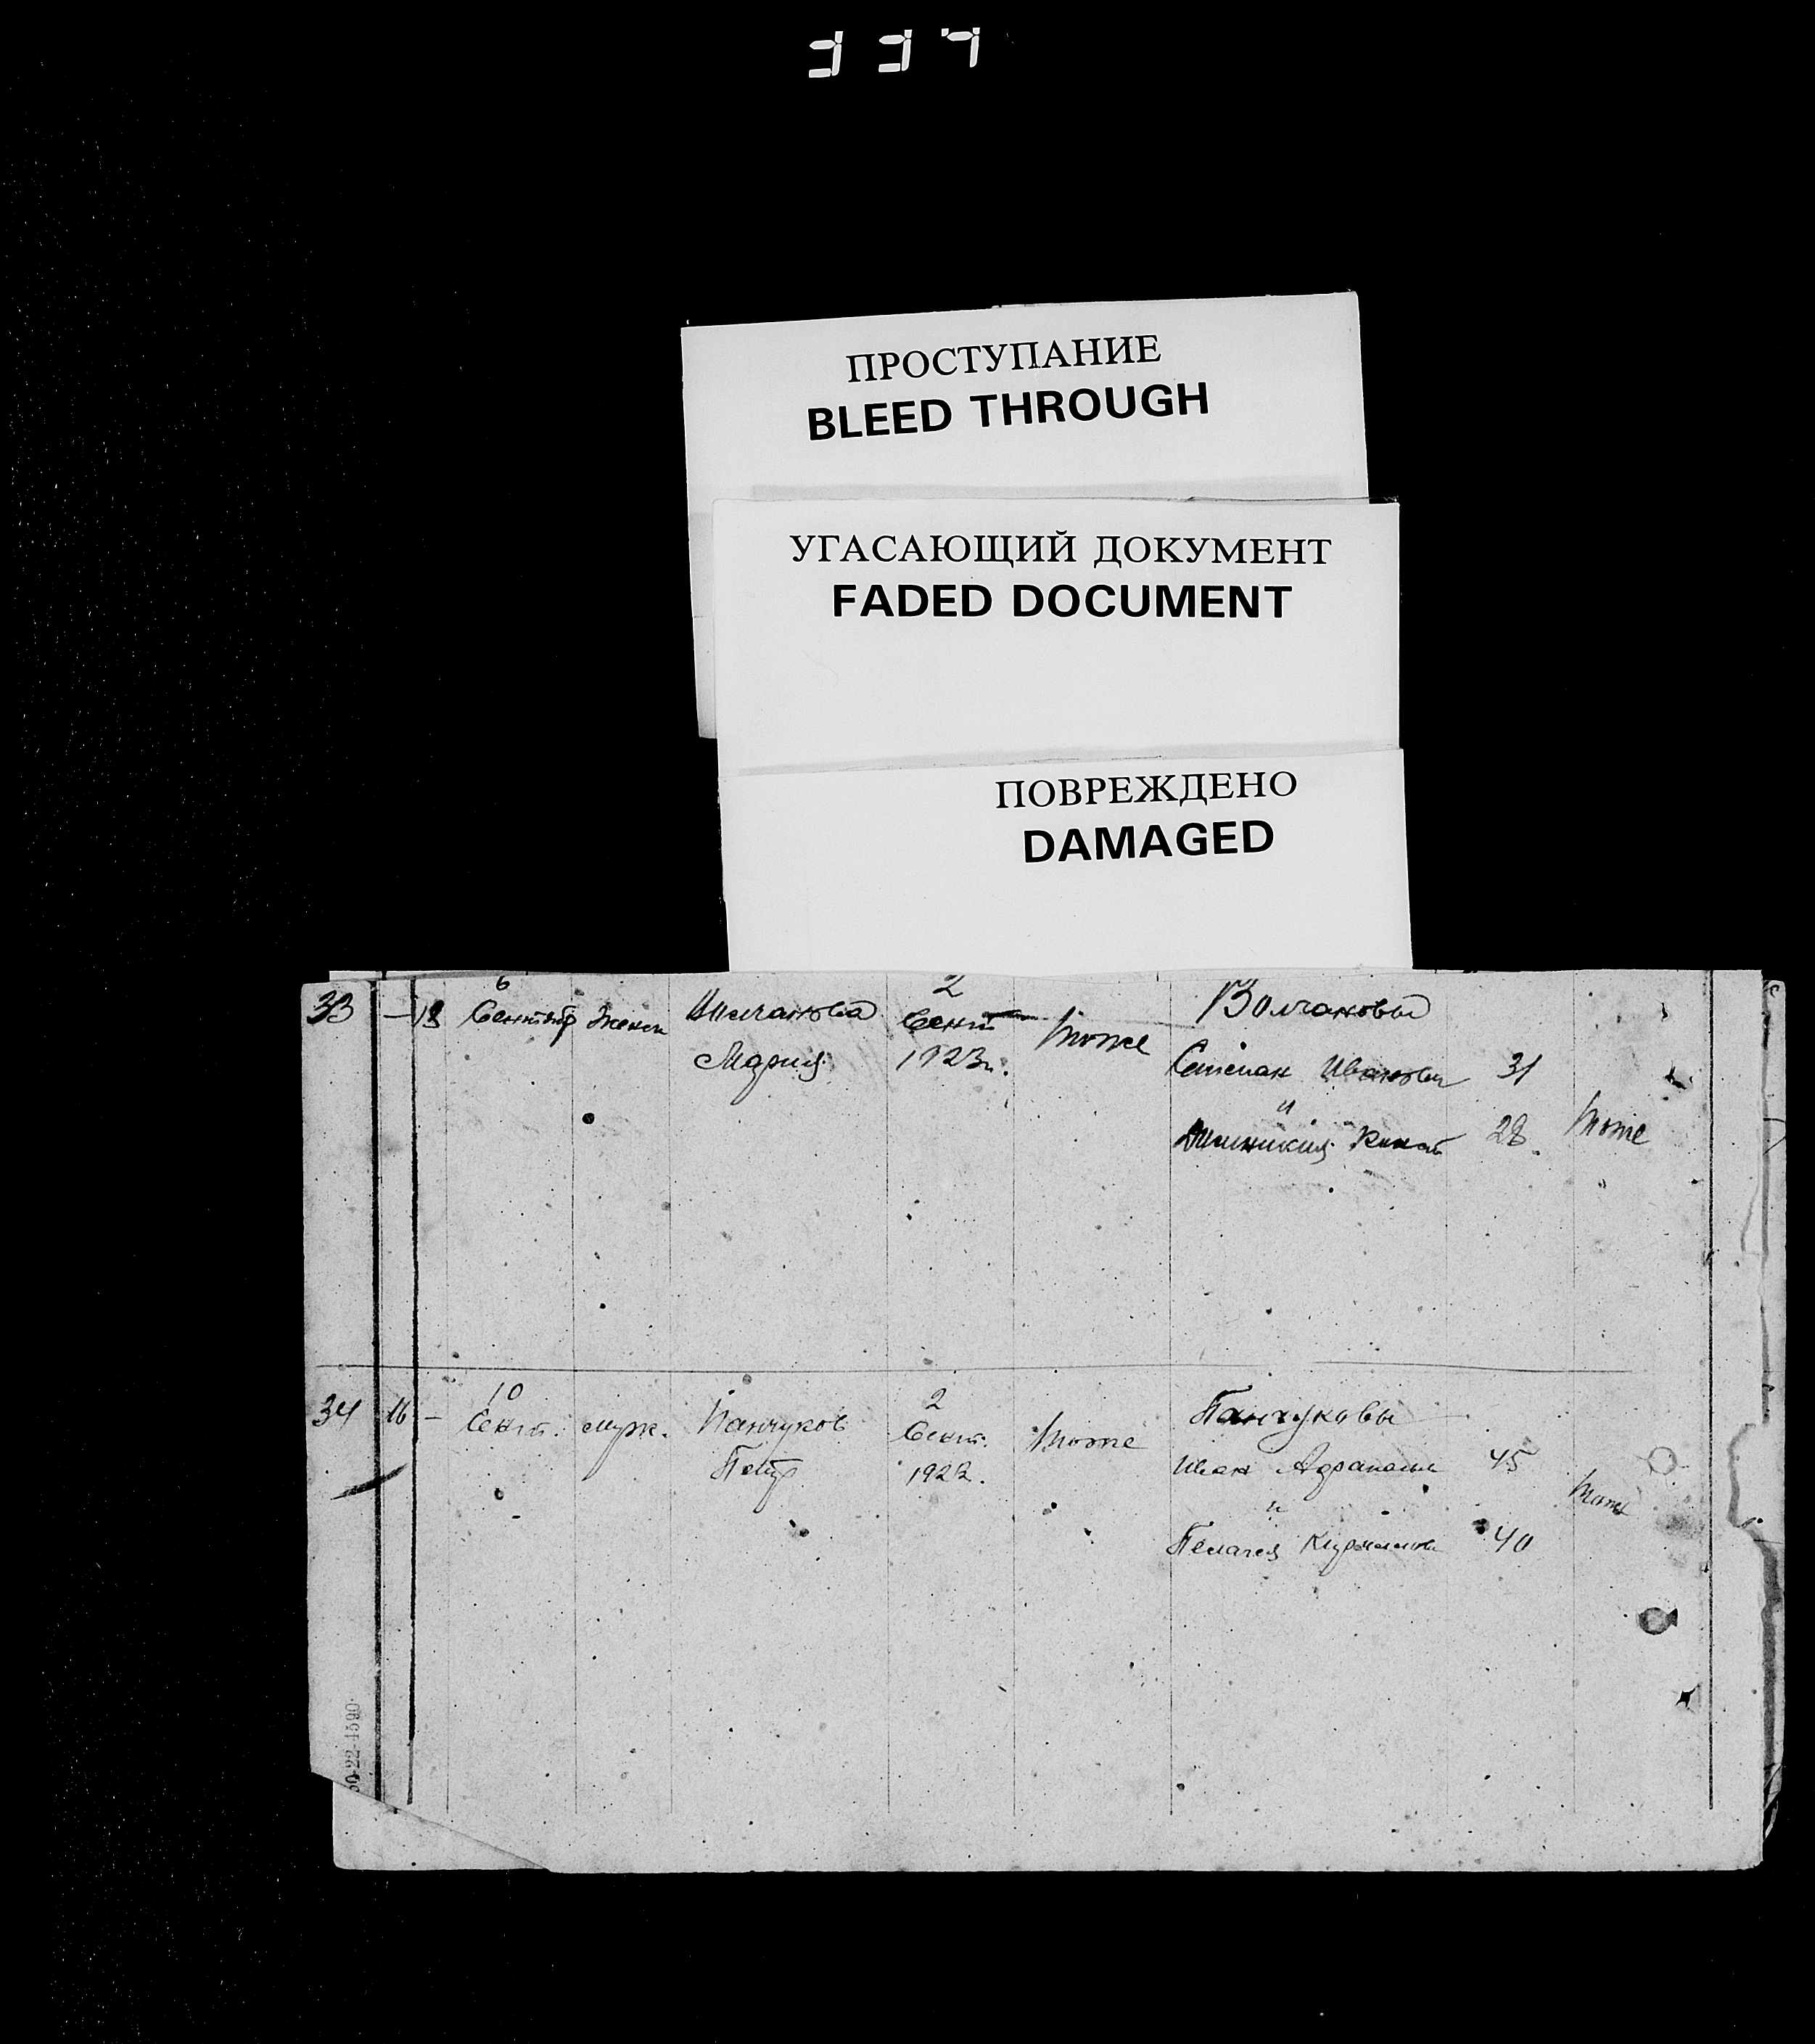 337
ПРОСТУПАНИЕ
BLEED THROUGH
УГАСАЮЩИЙ ДОКУМЕНТ
FADED DOCUMENT
ПОВРЕЖДЕНО
DAMAGED
33 — 6 2 Волчановы
Сентябр Женск Сент тоже
Мария 1923г. Степан Иванович 31
и
28 тоже
34 16 — 10 2 Панчуковы
Сент. муж. Панчуков Сент. тоже
Петр 1923. Иван 45 тоже
и
Пелагея 40
50-22-1590.